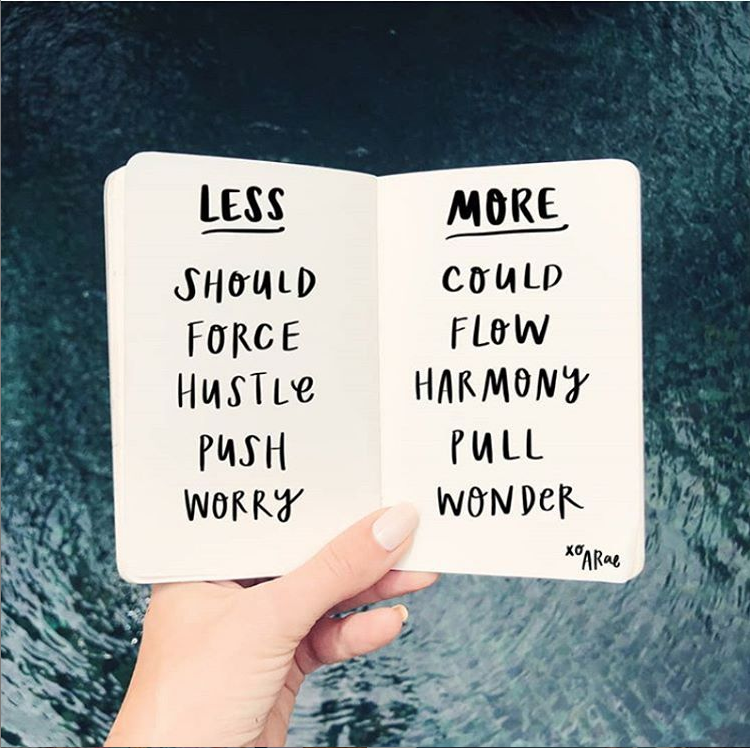 LESS
SHOULD
FORCE
HUSTLE
PUSH
WORRY
MORE
COULD
FLOW
HARMONY
PULL
WONDER
xo ARae